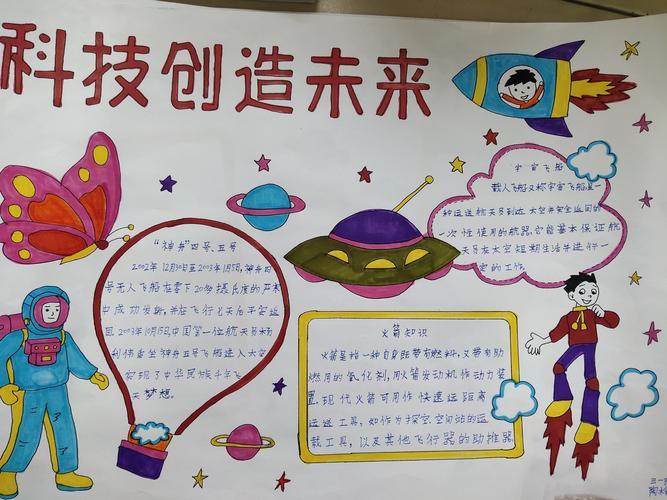 科技创造未来
宇宙飞船
载人飞船又称宇宙飞船是一
种运送航天员到达太空并安全返回的
一次性使用的航器.它能基本保证航
天员在太空短期生活并进行一
定的工作.
“神舟”四号、五号
2002年12月30日至2003年1月5日,神舟四
号无人飞船在零下20多摄氏度的严寒
中成功发射,并在飞行七天后平安返回
2003年10月15日,中国第一位航天员杨
利伟乘坐神舟五号飞船进入太空
实现了中华民族千年飞
天梦想.
火箭知识
火箭是指一种自身既带有燃料,又带有助
燃用的氧化剂,用火箭发动机作动力装
置,现代火箭可用作快速远距离
运送工具,如作为探空.空间站的运
载工具,以及其他飞行器的助推器
三一